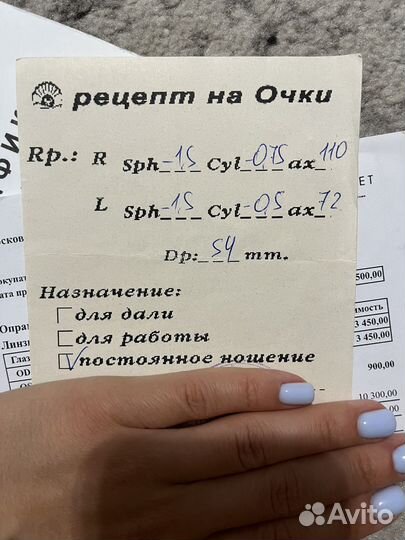 рецепт на Очки
Rp.: R Sph -1,5 Cyl -0,75 ax 110
L Sph -1,5 Cyl -0,5 ax 72
Dp: 54 mm.
Назначение:
для дали
для работы
постоянное ношение
ЕТ
500,00
имость
3 450,00
Оправ
3 450,00
Линз
Глаз
900,00
OD
10 300,00
OS
Avito